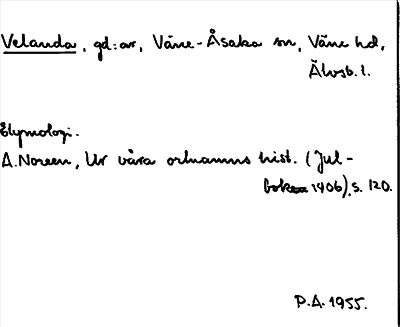 Velanda, gd:ar, Väne-Åsaka sn, Väne hd,
Älvsb. l.
Etymologi.
A. Noreen, Ur våra ortnamns hist. (Jul-
boken 1906), s. 120.
P.A. 1955.